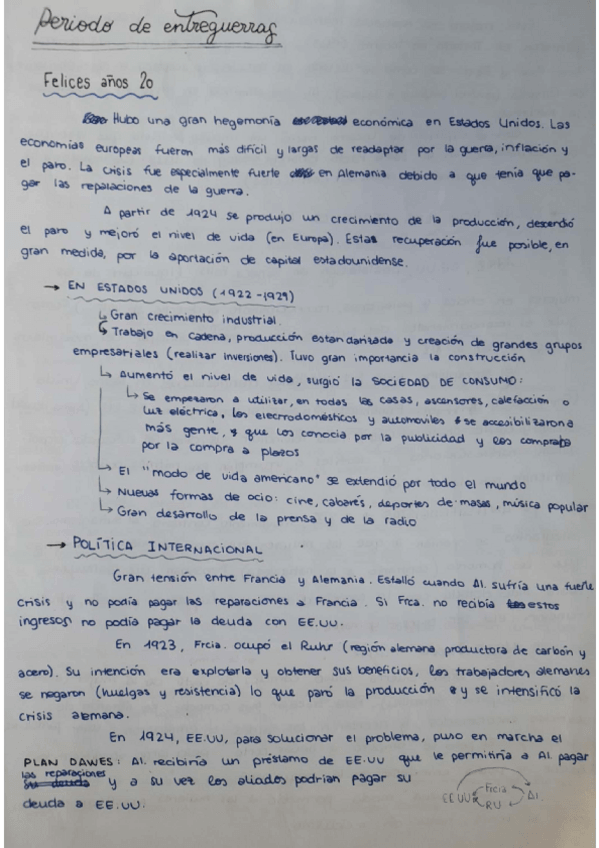 Periodo de entreguerras
Felices años 20
Hubo una gran hegemonía económica en Estados Unidos. Las
economías europeas fueron más difícil y largas de readaptar por la guerra, inflación y
el paro. La crisis fue especialmente fuerte en Alemania debido a que tenía que pa-
gar las reparaciones de la guerra.
A partir de 1924 se produjo un crecimiento de la producción, descendió
el paro y mejoró el nivel de vida (en Europa). Estas recuperación fue posible, en
gran medida, por la aportación de capital estadounidense.
→ EN ESTADOS UNIDOS (1922-1929)
↳ Gran crecimiento industrial.
↳ Trabajo en cadena, producción estandarizada y creación de grandes grupos
empresariales (realizar inversiones). Tuvo gran importancia la construcción
↳ Aumentó el nivel de vida, surgió la SOCIEDAD DE CONSUMO:
↳ Se empezaron a utilizar, en todas las casas, ascensores, calefacción o
luz eléctrica, los electrodomésticos y automoviles se accesibilizaron a
más gente, que los conocía por la publicidad y los compraba
por la compra a plazos
↳ El "modo de vida americano" se extendió por todo el mundo
↳ Nuevas formas de ocio: cine, cabarés, deportes de masas, música popular
↳ Gran desarrollo de la prensa y de la radio
→ POLÍTICA INTERNACIONAL
Gran tensión entre Francia y Alemania. Estalló cuando Al. sufría una fuerte
crisis y no podía pagar las reparaciones a Francia. Si Frca. no recibía estos
ingresos no podía pagar la deuda con EE.UU.
En 1923, Frcia. ocupó el Ruhr (región alemana productora de carbón y
acero). Su intención era explotarla y obtener sus beneficios, los trabajadores alemanes
se negaron (huelgas y resistencia) lo que paró la producción y se intensificó la
crisis alemana.
En 1924, EE.UU, para solucionar el problema, puso en marcha el
PLAN DAWES: Al. recibiría un préstamo de EE.UU que le permitiría a Al. pagar
las reparaciones y a su vez los aliados podrían pagar su
deuda a EE.UU.
EEUU Frcia RU Al.